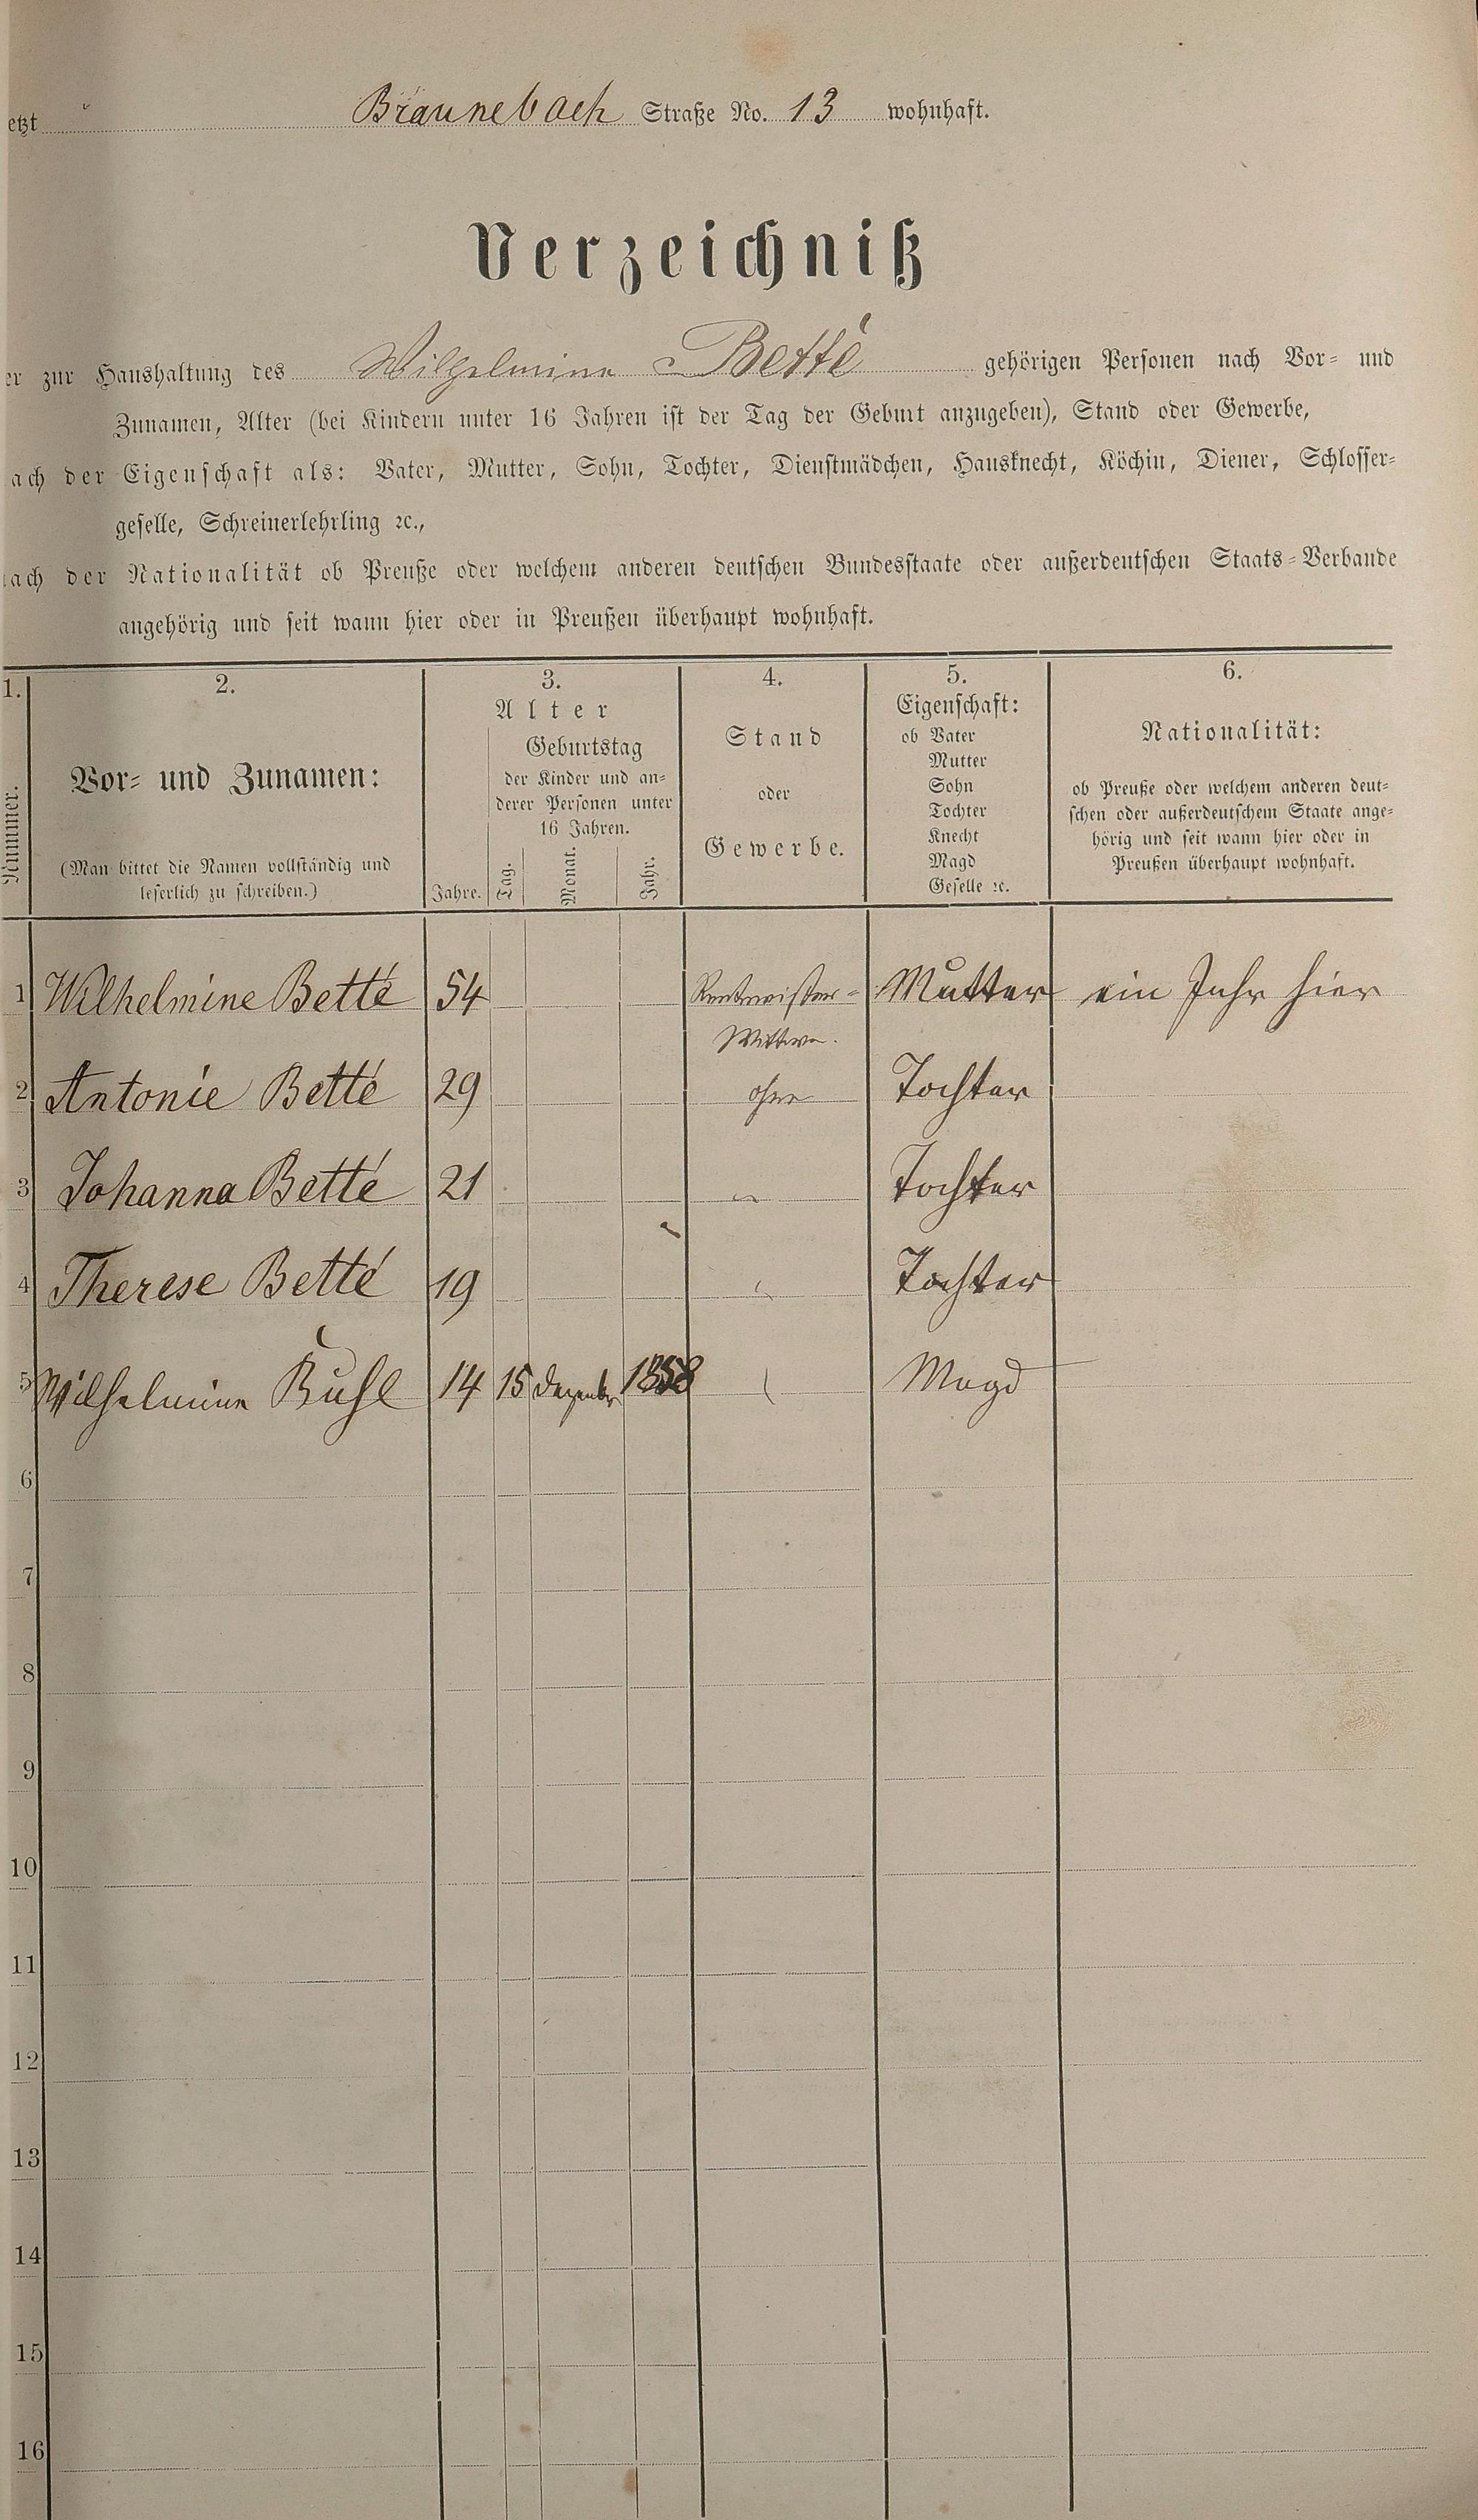 etzt Braunebach Straße No. 13 wohnhaft.
Verzeichniß
er zur Haushaltung des Wilhelmine Betté gehörigen Personen nach Vor- und
Zunamen, Alter (bei Kindern unter 16 Jahren ist der Tag der Geburt anzugeben), Stand oder Gewerbe,
ach der Eigenschaft als: Vater, Mutter, Sohn, Tochter, Dienstmädchen, Hausknecht, Köchin, Diener, Schlosser-
geselle, Schreinerlehrling ꝛc.,
ach der Nationalität ob Preuße oder welchem anderen deutschen Bundesstaate oder außerdeutschen Staats-Verbande
angehörig und seit wann hier oder in Preußen überhaupt wohnhaft.
1. 2. 3. 4. 5. 6.
Nummer.
Vor- und Zunamen:
(Man bittet die Namen vollständig und
leserlich zu schreiben.)
Alter
Geburtstag
der Kinder und an-
derer Personen unter
16 Jahren.
Jahre. Tag. Monat. Jahr.
Stand
oder
Gewerbe.
Eigenschaft:
ob Vater
Mutter
Sohn
Tochter
Knecht
Magd
Geselle ꝛc.
Nationalität:
ob Preuße oder welchem anderen deut-
schen oder außerdeutschem Staate ange-
hörig und seit wann hier oder in
Preußen überhaupt wohnhaft.
1 Wilhelmine Betté 54 Mutter ein Jahr hier
Wittwe.
2 Antonie Betté 29 ohne Tochter
3 Johanna Betté 21 " Tochter
4 Therese Betté 19 " Tochter
5 Wilhelmine Buhl 14 15 Dezember 1858 Magd
6
7
8
9
10
11
12
13
14
15
16